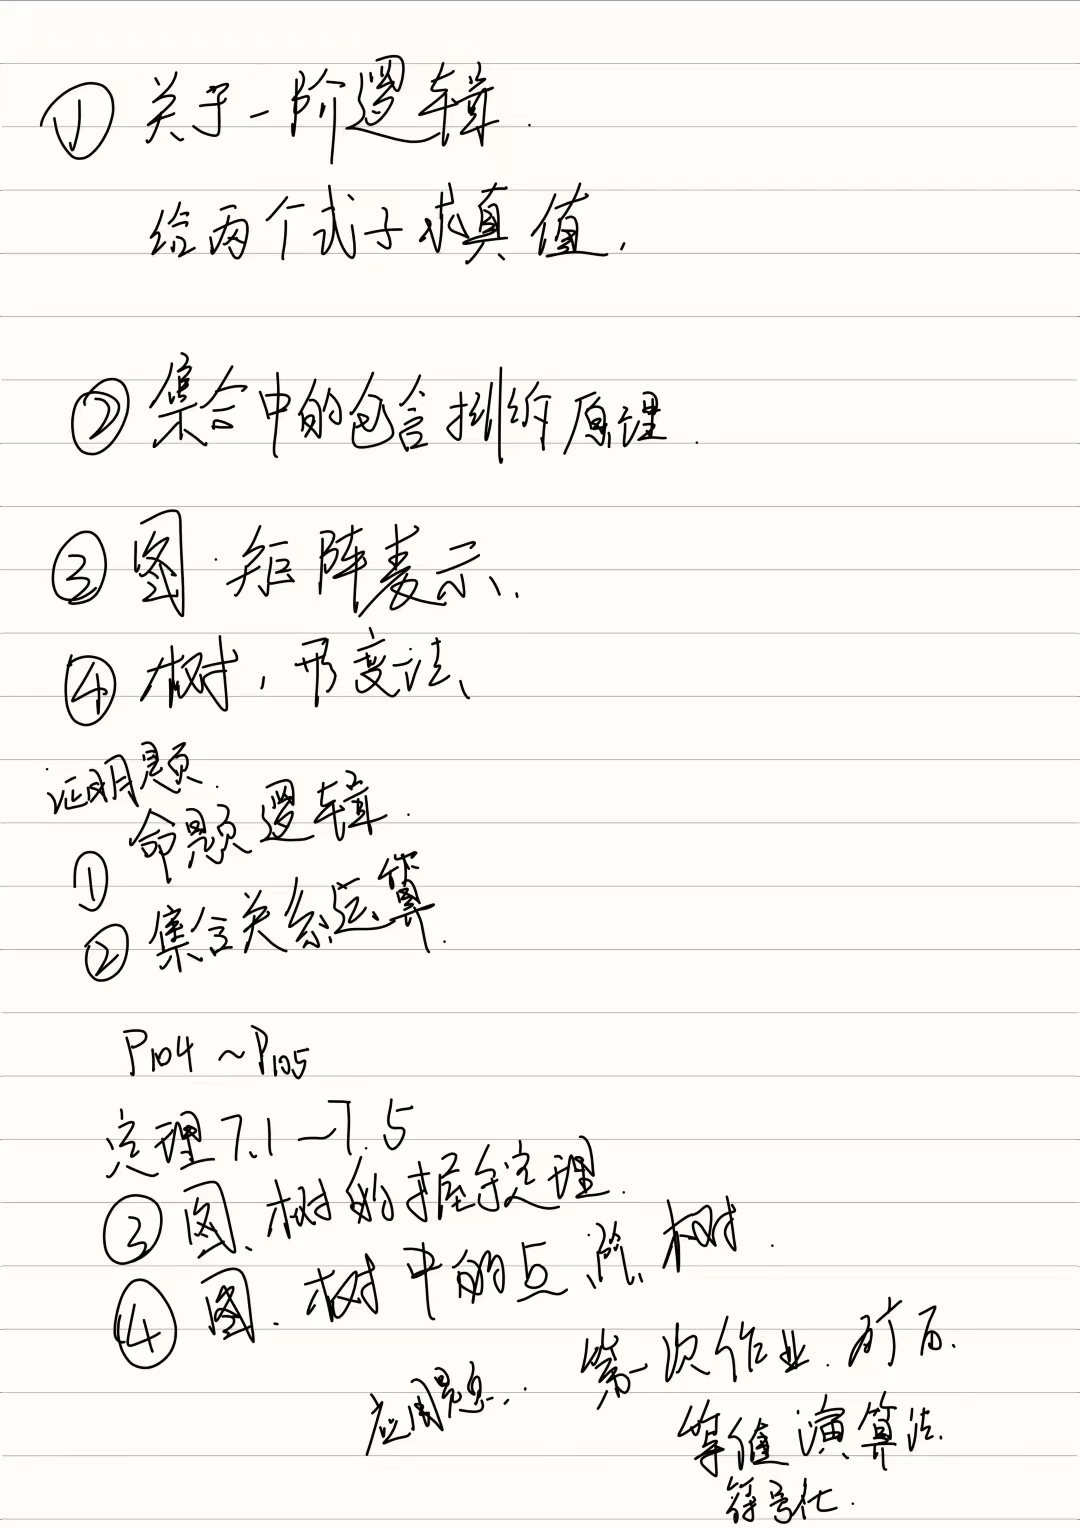 ① 关于一阶逻辑.
给两个式子求真值.
② 集合中的包含排斥原理.
③ 图.矩阵表示.
④ 树,
证明题.
① 命题逻辑.
② 集合关系运算.
P104~P105
定理7.1—7.5
③ 图、树的握手定理.
④ 图、树中的点 树.
应用题. 第一次作业.矿石.
等值演算法.
符号化.